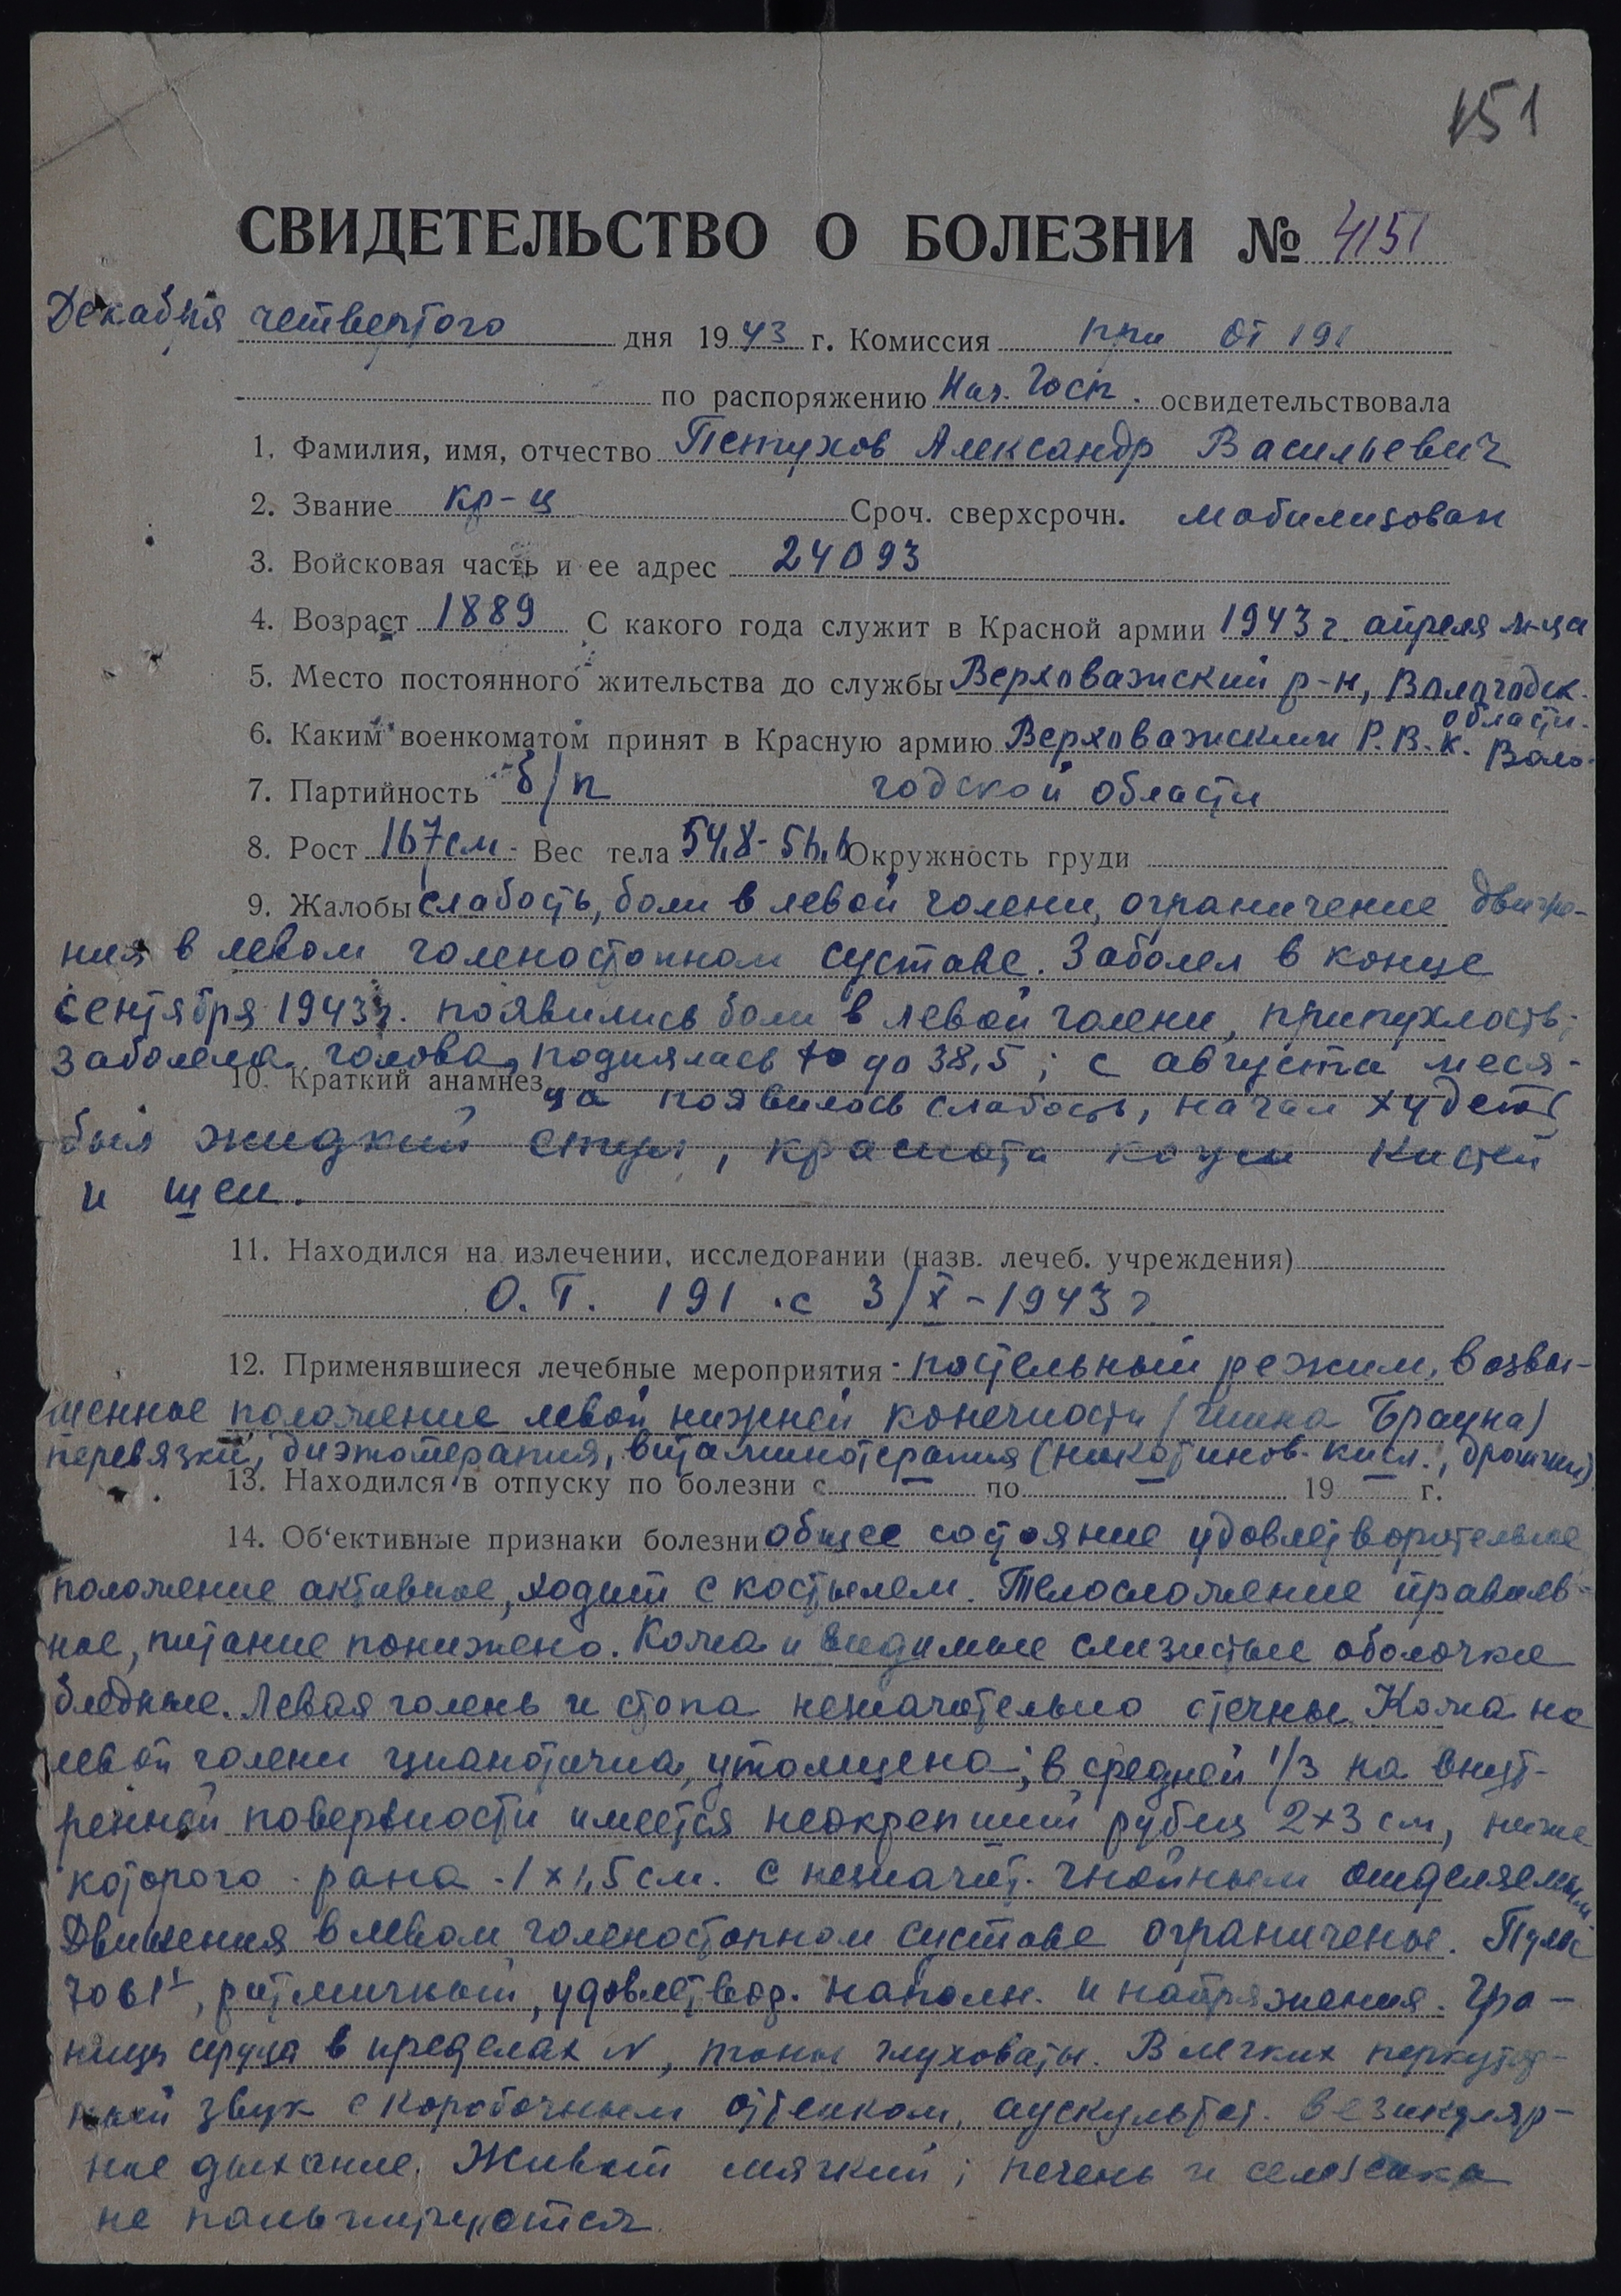 151
СВИДЕТЕЛЬСТВО О БОЛЕЗНИ № 4151
Декабря четвертого дня 1943 г. Комиссия при ОГ 191
по распоряжению Нач. Госп. освидетельствовала
1. Фамилия, имя, отчество Петухов Александр Васильевич
2. Звание кр-ц Сроч. сверхсрочн. мобилизован
3. Войсковая часть и ее адрес 24093
4. Возраст 1889 С какого года служит в Красной армии 1943 г. апреля м-ца
5. Место постоянного жительства до службы Верховажский р-н, Вологодск.
области.
6. Каким военкоматом принят в Красную армию Верховажским Р.В.К. Воло-
7. Партийность б/п годской области
8. Рост 167 см - Вес тела 54,8 - Окружность груди
9. Жалобы слабость, боли в левой голени, ограничение движе-
ния в левом голеностопном суставе. Заболел в конце
сентября 1943 г. появились боли в левой голени, припухлость;
заболела голова, поднялась t° до 38,5; с августа меся-
10. Краткий анамнез
ца появилась слабость, начал худеть,
был жидкий стул, краснота кожи кистей
и шеи.
11. Находился на излечении, исследовании (назв. лечеб. учреждения)
О.Г. 191 с 3/X-1943 г
12. Применявшиеся лечебные мероприятия - постельный режим, возвы-
шенное положение левой нижней конечности (шина Брауна)
перевязки, диэтотерапия, витаминотерапия (никотинов. кисл., дрожжи).
13. Находился в отпуску по болезни с — по — 19 — г.
14. Об'ективные признаки болезни общее состояние удовлетворительное
положение активное, ходит с костылем. Телосложение правиль-
ное, питание понижено. Кожа и видимые слизистые оболочки
бледные. Левая голень и стопа незначительно отечны. Кожа на
левой голени цианотична, утолщена; в средней 1/3 на внут-
ренней поверхности имеется неокрепший рубец 2×3 см, ниже
которого рана 1×1,5 см. с незначит. гнойным отделяемым.
Движения в левом голеностопном суставе ограничены. Пульс
70 в 1', ритмичный, удовлетвор. наполн. и напряжения. Гра-
ницы сердца в пределах N, тоны глуховаты. В легких перкутор-
ный звук с коробочным оттенком, аускультат. везикуляр-
ное дыхание. Живот мягкий; печень и селезенка
не пальпируются.